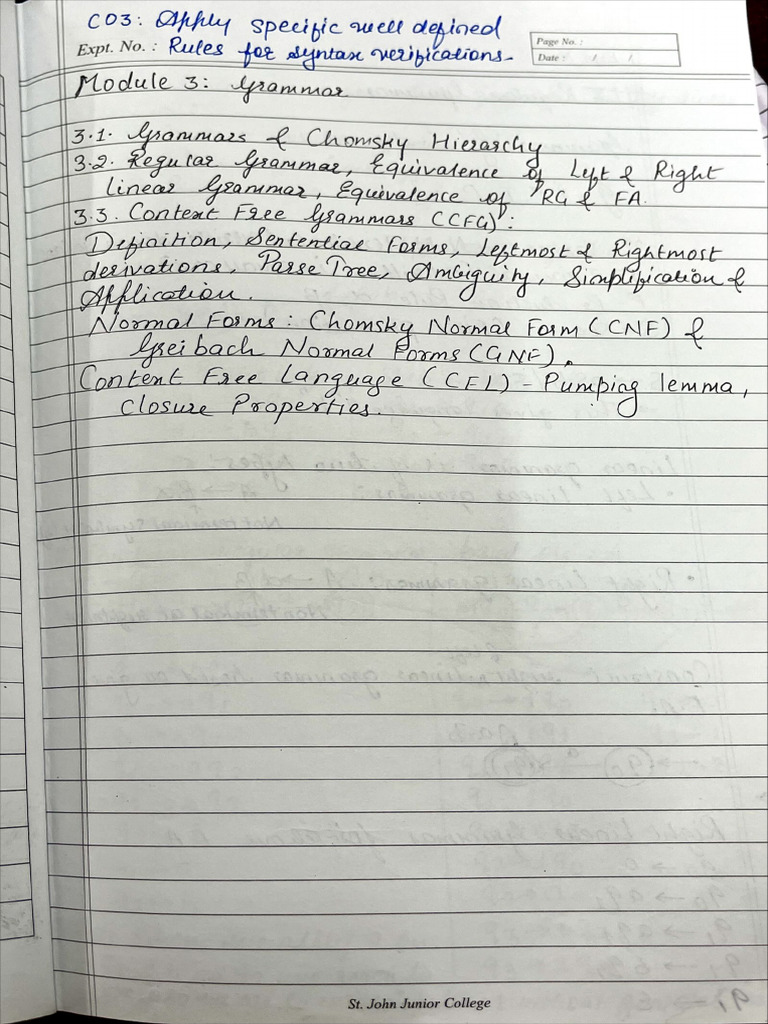 CO3: Apply specific well defined
Expt. No. : Rules for syntax verifications.
Page No. :
Date : / /
Module 3: Grammar
3.1. Grammars & Chomsky Hierarchy
3.2. Regular Grammar, Equivalence of Left & Right
linear Grammar, Equivalence of RG & FA.
3.3. Context Free Grammars (CFG):
Definition, Sentential Forms, Leftmost & Rightmost
derivations, Parse Tree, Ambiguity, Simplification &
Application.
Normal Forms: Chomsky Normal Form (CNF) &
Greibach Normal Forms (GNF).
Context Free Language (CFL) - Pumping lemma,
Closure Properties.
St. John Junior College